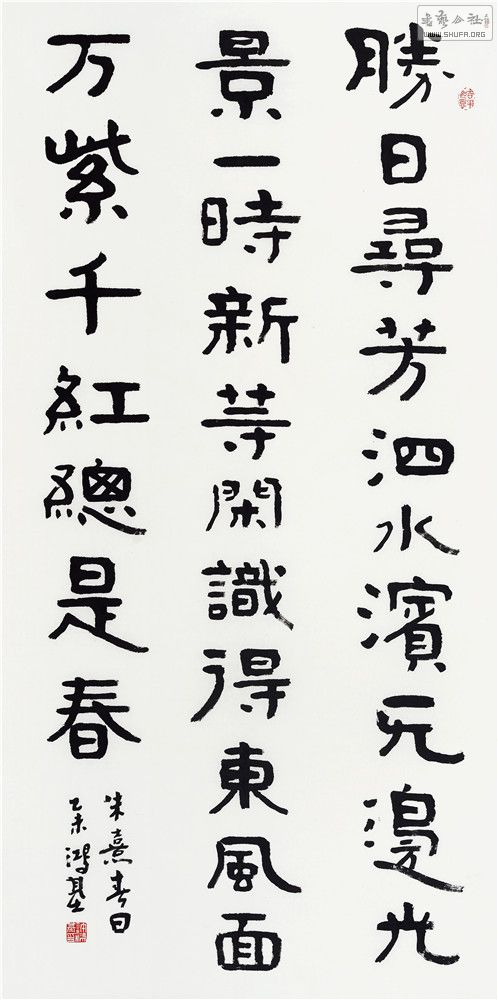 勝日尋芳泗水濱无邊光
景一時新䓁閑識得東風面
万紫千紅總是春
朱熹春日
乙未鴻基
书艺公社
WWW.SHUFA.ORG